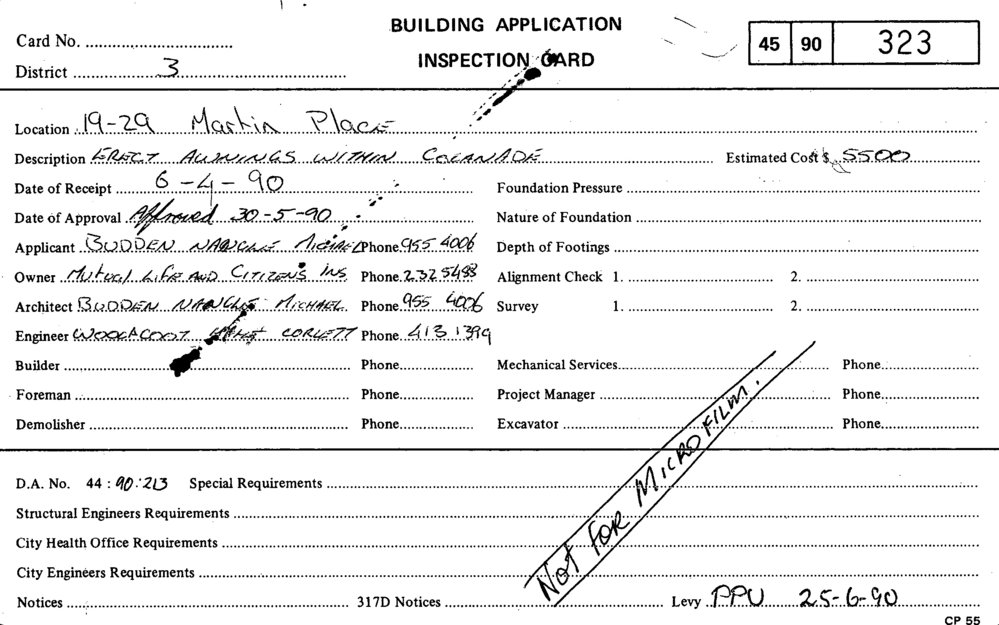 BUILDING APPLICATION
INSPECTION CARD
Card No.
45 90 323
District 3
Location 19-29 Martin Place
Description ERECT AWNINGS WITHIN COLANADE Estimated Cost $ 5500
Date of Receipt 6-4-90 Foundation Pressure
Date of Approval Approved 30-5-90 Nature of Foundation
Applicant BUDDEN NANGLE Phone 955 4006 Depth of Footings
Owner Mutual LIFE AND CITIZENS INS Phone 232 5488 Alignment Check 1. 2.
Architect BUDDEN NANGLE MICHAEL Phone 955 4006 Survey 1. 2.
Engineer CORLETT Phone 413 1399
Builder Phone Mechanical Services Phone
Foreman Phone Project Manager Phone
Demolisher Phone Excavator Phone
NOT FOR MICROFILM.
D.A. No. 44 : 90:213 Special Requirements
Structural Engineers Requirements
City Health Office Requirements
City Engineers Requirements
Notices 317D Notices Levy PPU 25-6-90
CP 55